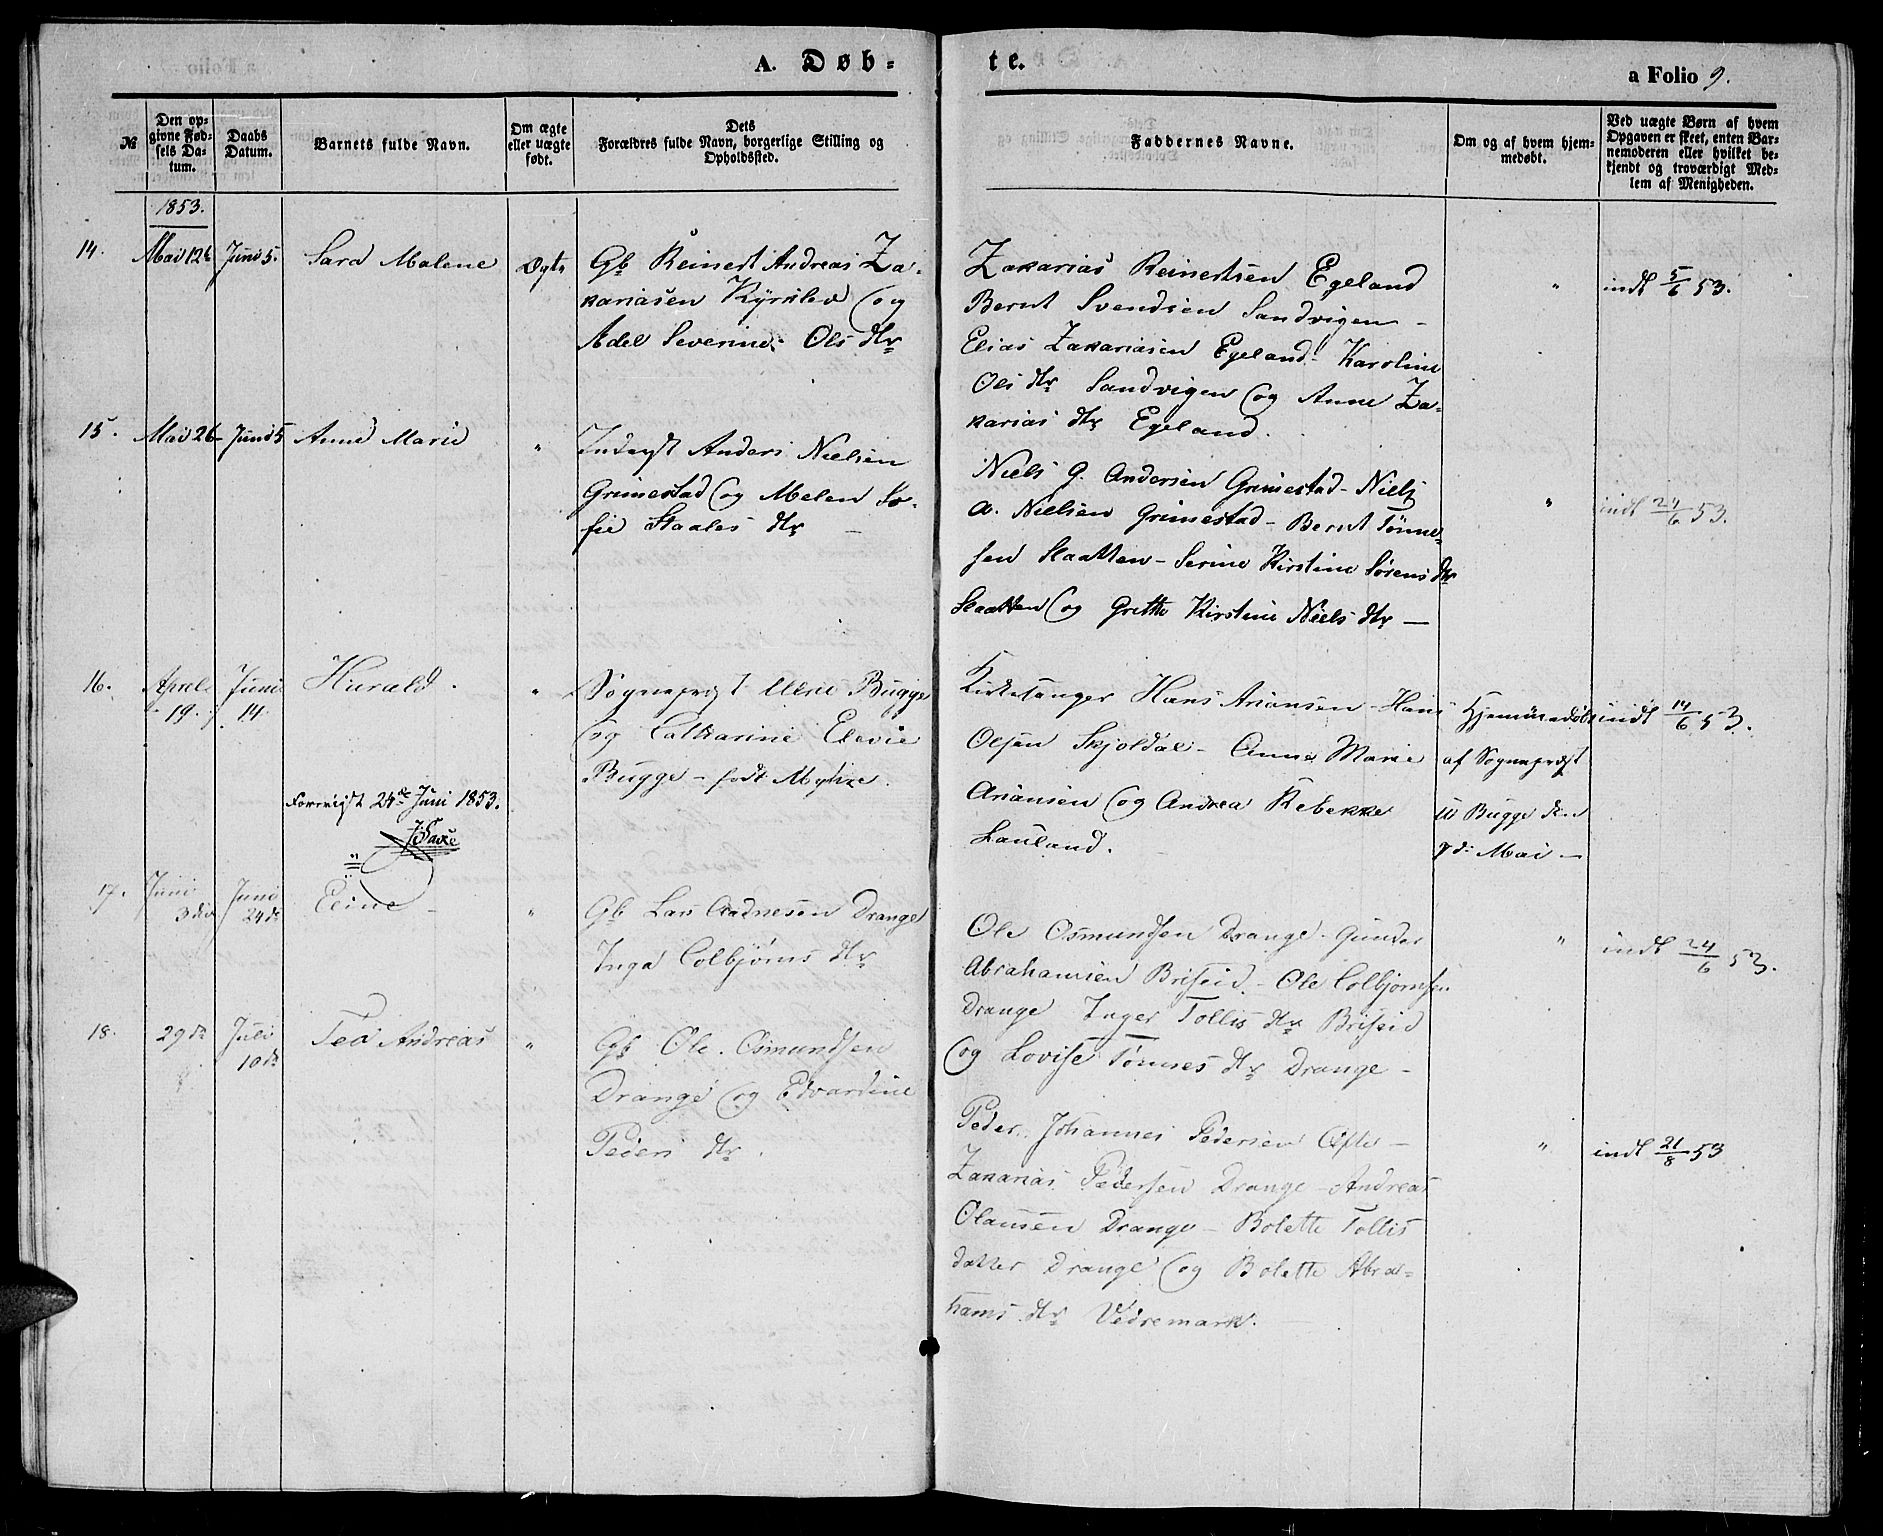 A. Døb=
te.
a Folio 9.
№
Den op=
givne Fød=
sels Da=
tum.
Daabs
Datum.
Barnets fulde Navn.
Om ægte
eller uægte
født.
Dets
Forældres fulde Navn, borgerlige Stilling og
Opholdssted.
Faddernes Navne.
Om og af hvem hjem=
medøbt.
Ved uægte Børn af hvem
Opgaven er skeet, enten Bar=
nemoderen eller hvilket be=
kjendt og troværdigt Med=
lem af Menigheden.
1853.
14.
Mai 12
Juni 5.
Sara Malene
Ægte
Gb Reinert Andreas Za-
kariasen Kyrklev og
Adel Severine Ols dtr
Zakarias Reinertsen Egeland
Bernt Svendsen Sandvigen -
Elias Zakariasen Egeland - Karoline
Ols dtr Sandvigen og Anne Za=
karias dtr Egeland.
"
indt 5/6 53.
15.
Mai 26
Juni 5
Anne Marie
"
Inderst Anders Nielsen
Grimestad og Malen So-
fie Staales dtr
Niels G. Andersen Grimestad - Niels
A. Nielsen Grimestad - Bernt Tønne=
sen Slaatten - Serine Kirstine Sørens dtr
Slaatten og Grethe Kirstine Niels dtr —
"
indt 24/6 53.
16.
April
19.
Juni
14.
Harald.
"
Sognepræst Bugge
og Catharine Elevie
Bugge - født Myhre.
Kirkesanger Hans Ariansen - Hans
Olsen Skjoldal - Anne Marie
Ariansen og Andrea Rebekke
Lauland.
Hjemmedøbt
af Sognepræst
Bugge den
7de Mai —
indt 14/6 53.
Foreviist 24de Juni 1853.
17.
Juni
3die
Juni
24de
Eline -
"
Gb Lars Aadnesen Drange
Inga Colbjørns dtr
Ole Osmundsen Drange - Gunder
Abrahamsen Briseid - Ole Colbjørnsen
Drange Inger Tollis dtr Briseid
og Lovise Tønnes dtr Drange -
"
indt 24/6 53.
18.
29de
Juli
10de
Teo Andreas
"
Gb Ole Osmundsen
Drange og Edvardine
Peders dtr.
Peder Johannes Pedersen —
Zakarias Pedersen Drange - Andreas
Olausen Drange - Bolette Tollis
datter Drange og Bolette Abra=
hams dtr Vedremark.
"
indt 21/8 53